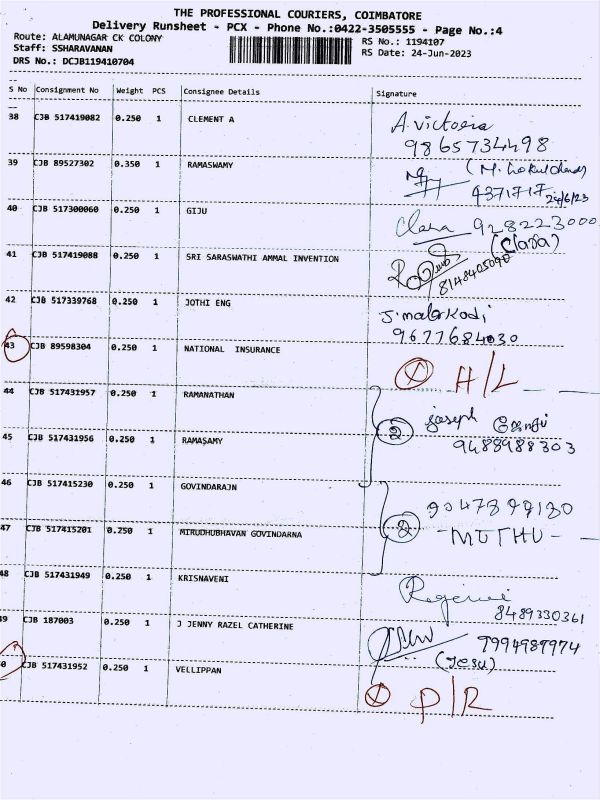 THE PROFESSIONAL COURIERS, COIMBATORE
Delivery Runsheet - PCX - Phone No.:0422-3505555 - Page No.:4
Route: ALAMUNAGAR CK COLONY
RS No.: 1194107
Staff: SSHARAVANAN
RS Date: 24-Jun-2023
DRS No.: DCJB119410704
S No Consignment No Weight PCS Consignee Details Signature
38 CJB 517419082 0.250 1 CLEMENT A A. Victoria
9865734498
39 CJB 89527302 0.350 1 RAMASWAMY
4371717 24/6/23
40 CJB 517300060 0.250 1 GIJU Clara 928223000
(Clara)
41 CJB 517419088 0.250 1 SRI SARASWATHI AMMAL INVENTION
8148405090
42 CJB 517339768 0.250 1 JOTHI ENG J. malarkodi
9677684030
43 CJB 89598304 0.250 1 NATIONAL INSURANCE X H/L
44 CJB 517431957 0.250 1 RAMANATHAN joseph
2
45 CJB 517431956 0.250 1 RAMASAMY 9488988303
46 CJB 517415230 0.250 1 GOVINDARAJN
2
47 CJB 517415201 0.250 1 MIRUDHUBHAVAN GOVINDARNA - MUTHU -
48 CJB 517431949 0.250 1 KRISNAVENI
8489330361
49 CJB 187003 0.250 1 J JENNY RAZEL CATHERINE 7994989974
(Jesu)
50 CJB 517431952 0.250 1 VELLIPPAN
X P/R